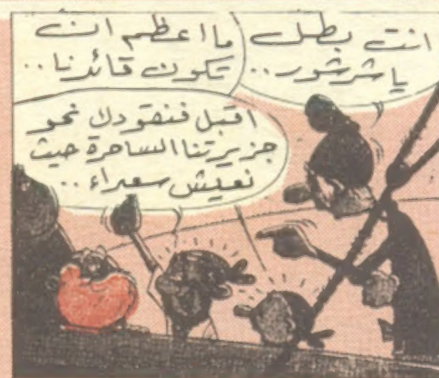 انت بطل
يا شرشور ..
ما اعظم ان
تكون قائدنا ..
اقبل فنقودك نحو
جزيرتنا الساحرة حيث
نعيش سعداء ..